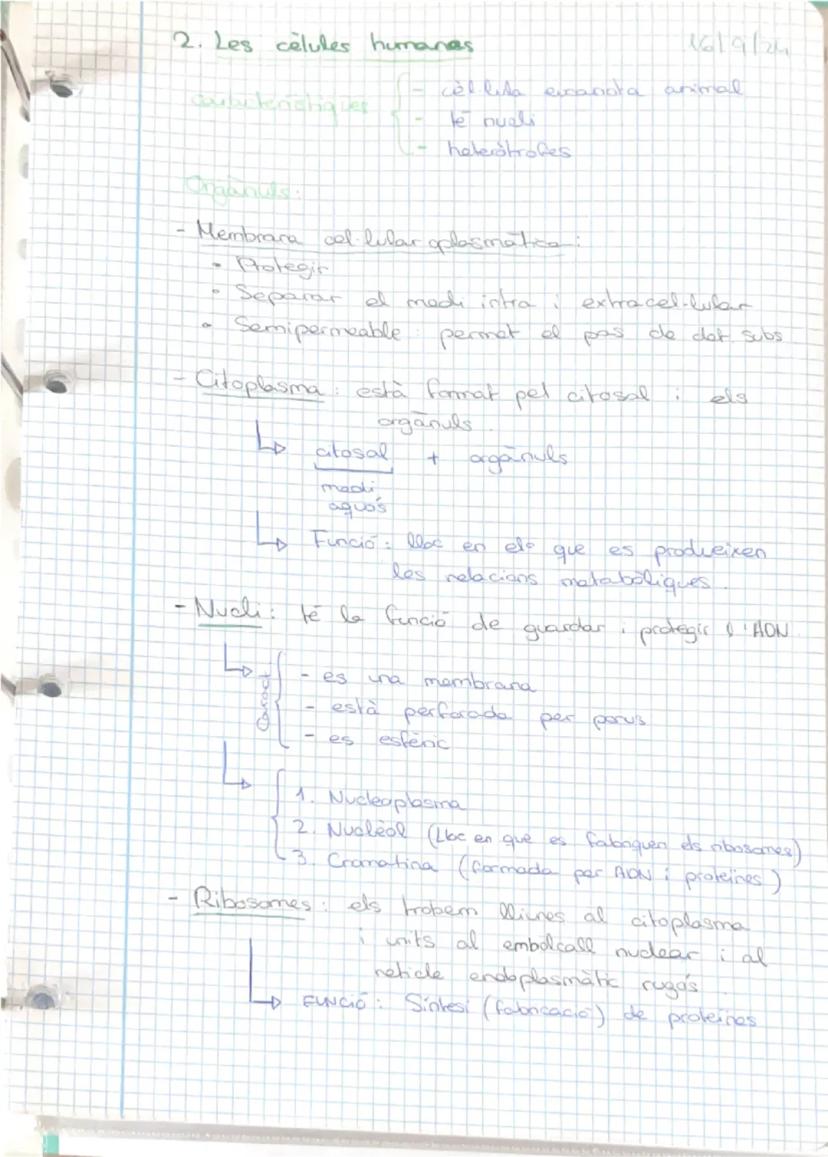 2. Les cèlules humanes 16/9/24
característiques - cèl·lula eucariota animal
- té nucli
- heteròtrofes
Orgànuls:
- Membrana cel·lular o plasmàtica:
• Protegir
• Separar el medi intra i extracel·lular
• Semipermeable: permet el pas de det. subs
- Citoplasma: està format pel citosol i els
orgànuls.
↳ citosol + orgànuls
medi
aquós
↳ Funció: lloc en els que es produeixen
les relacions metabòliques.
- Nucli: té la funció de guardar i protegir l'ADN
↳ - es una membrana
- està perforada per porus
- es esfèric
↳ 1. Nucleoplasma
2. Nuclèol (Lloc en que es fabriquen els ribosomes)
3. Cromatina (formada per ADN i proteïnes)
- Ribosomes: els trobem lliures al citoplasma
i units al embolcall nuclear i al
reticle endoplasmàtic rugós.
↳ FUNCIÓ: Síntesi (fabricació) de proteïnes